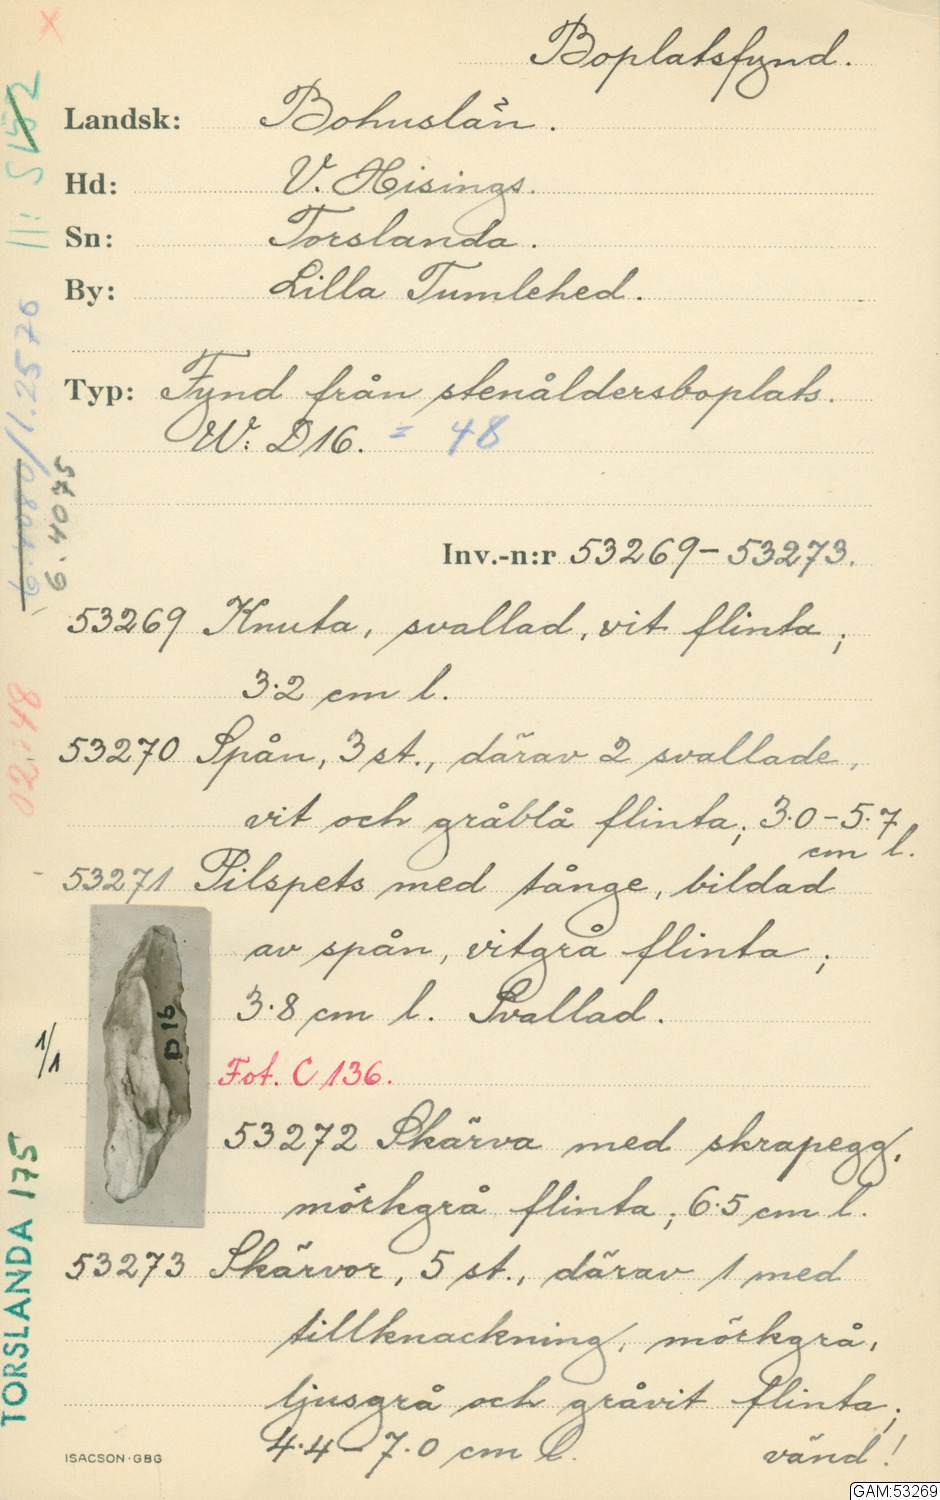 Boplatsfynd.
Landsk: Bohuslän.
Hd: V. Hisings.
Sn: Torslanda.
By: Lilla Tumlehed.
Typ: Fynd från stenåldersboplats.
W: D16. = 48
Inv.-n:r 53269-53273.
53269 Knuta, svallad, vit flinta;
3.2 cm l.
53270 Spån, 3 st., därav 2 svallade,
vit och gråblå flinta; 3.0-5.7
cm l.
53271 Pilspets med tånge, bildad
av spån, vitgrå flinta;
3.8 cm l. Svallad.
Fot. C 136.
53272 Skärva med skrapegg,
mörkgrå flinta; 6.5 cm l.
53273 Skärvor, 5 st., därav 1 med
tillknackning, mörkgrå,
ljusgrå och gråvit flinta;
4.4-7.0 cm l. vänd!
D16
1/1
TORSLANDA 175
02:48
6.4080/1.2570
6.4075
X
ISACSON·GBG
GAM:53269